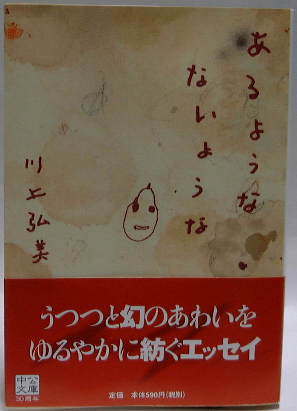 あるような
ないような
川上弘美
うつつと幻のあわいを
ゆるやかに紡ぐエッセイ
中公
文庫
30周年
定価 本体590円(税別)